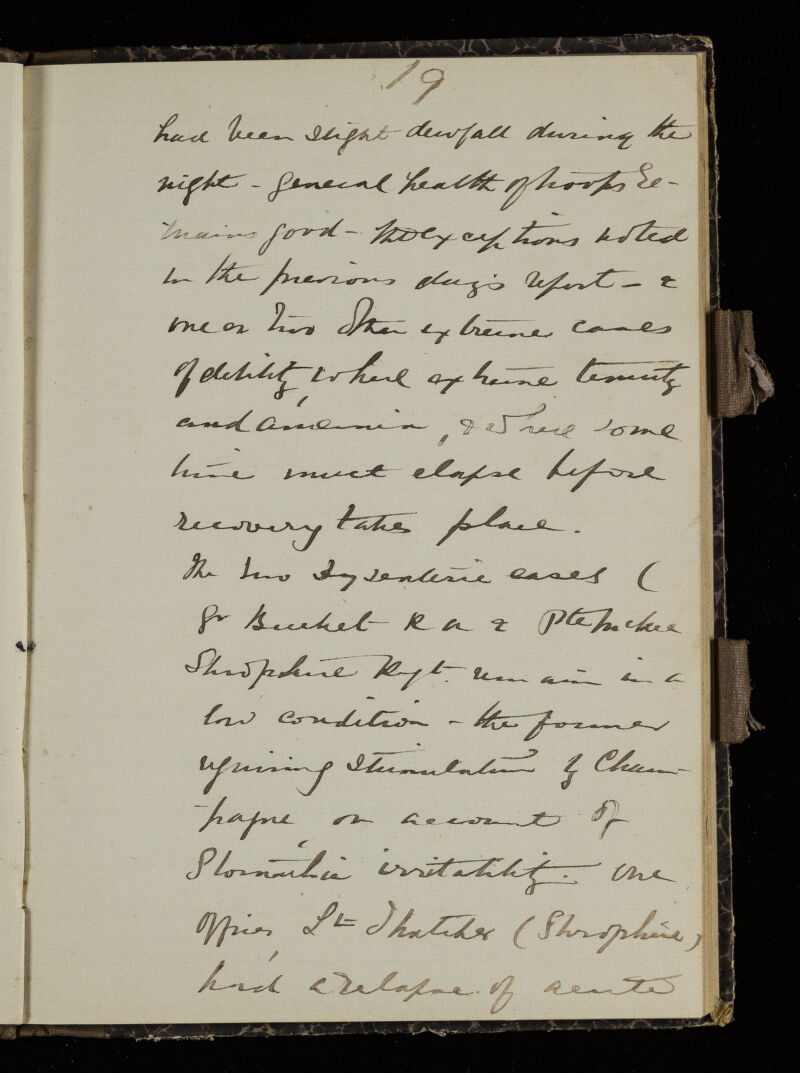 19
had been slight dewfall during the
night - general health of troops re-
mains good - the exceptions noted
in the previous day's report - &
one or two other extreme cases
of debility, where extreme tenuity
and anaemia, & where some
time must elapse before
recovery takes place.
The two dysenteric cases (
Gr Bucket R A & Pte
Shropshire Regt. remain in a
low condition - the former
requiring stimulation by Cham-
pagne, on account of
Stomachic irritability. One
officer, Lt Thatcher (Shropshire)
had a relapse of acute